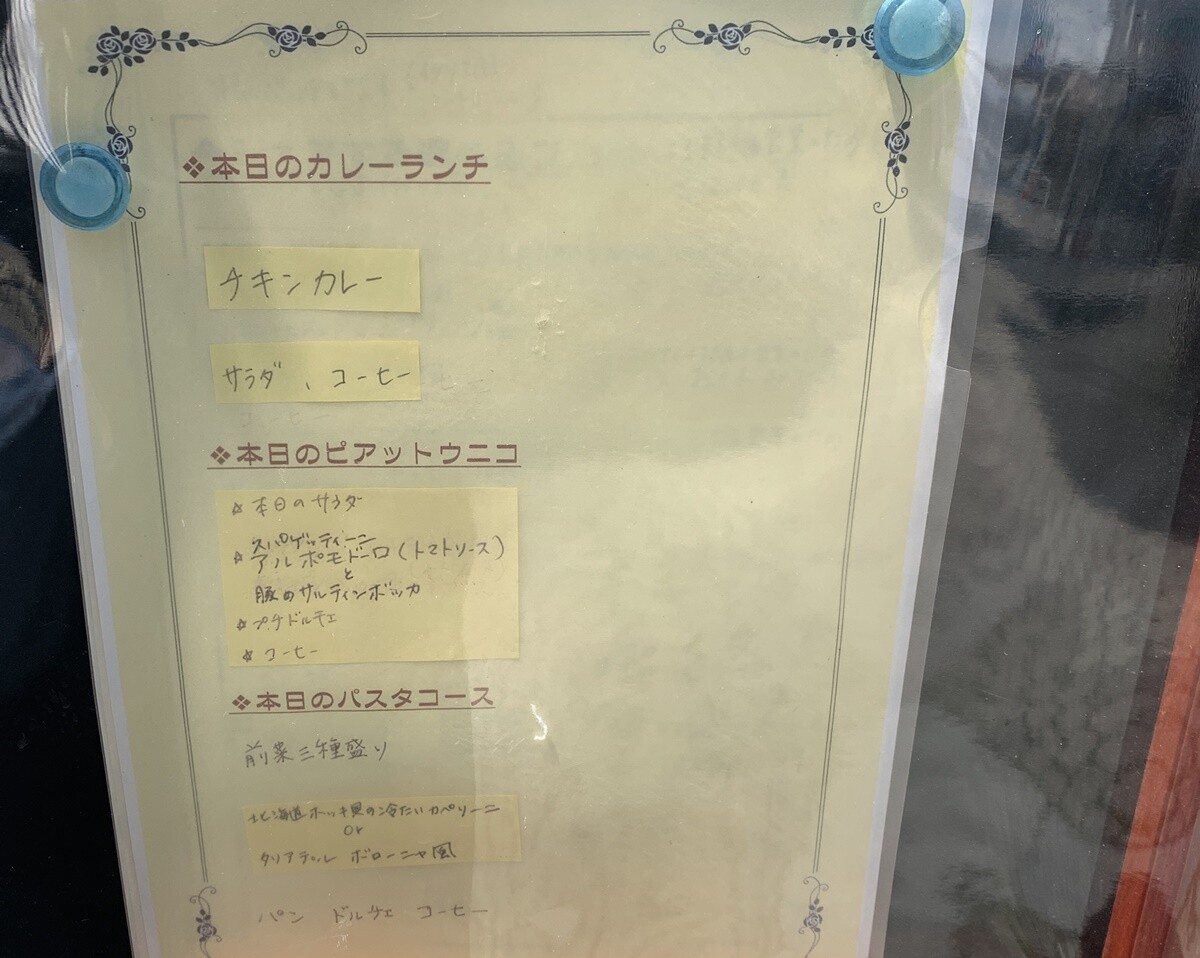 ❖本日のカレーランチ
チキンカレー
サラダ 、コーヒー
❖本日のピアットウニコ
☆本日のサラダ
スパゲッティーニ
☆アルポモドーロ(トマトソース)
と
豚のサルティンボッカ
☆プチドルチェ
☆コーヒー
❖本日のパスタコース
前菜三種盛り
北海道ホッキ貝の冷たいカペリーニ
or
タリアテッレ ボローニャ風
パン ドルチェ コーヒー